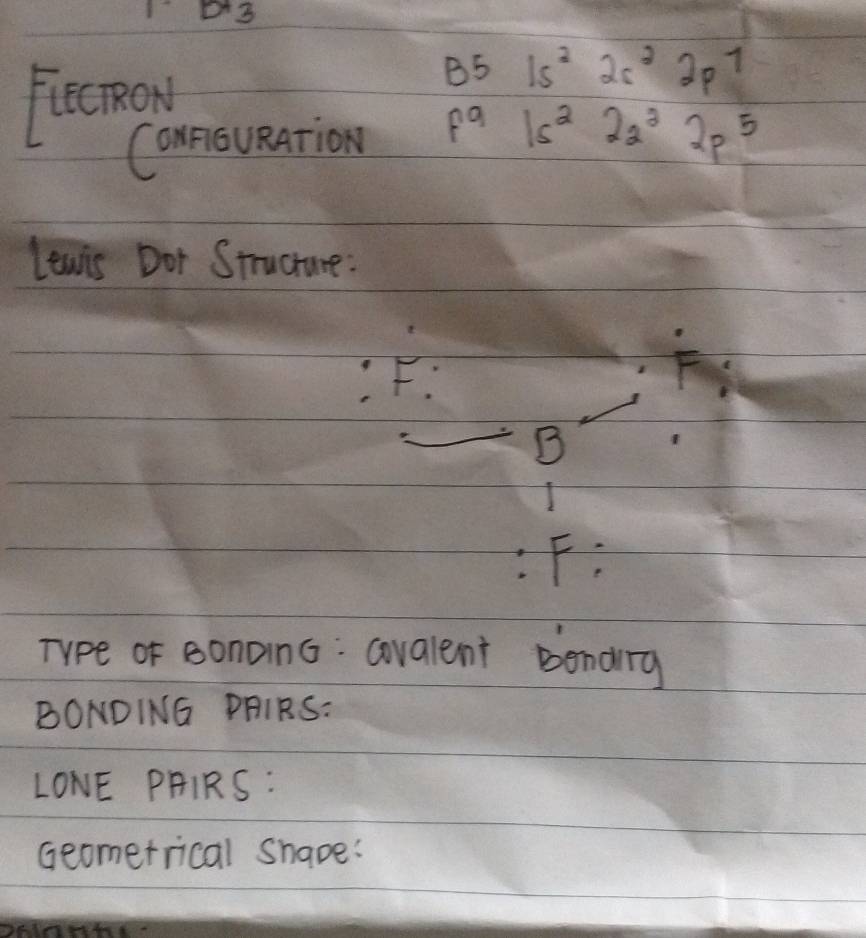 ELECTRON
CONFIGURATION
B5 1s² 2s² 2p¹
F9 1s² 2s² 2p⁵
Lewis Dot Structure:
:F: F:
B
:F:
Type of Bonding: Covalent Bonding
BONDING PAIRS:
LONE PAIRS:
Geometrical Shape: